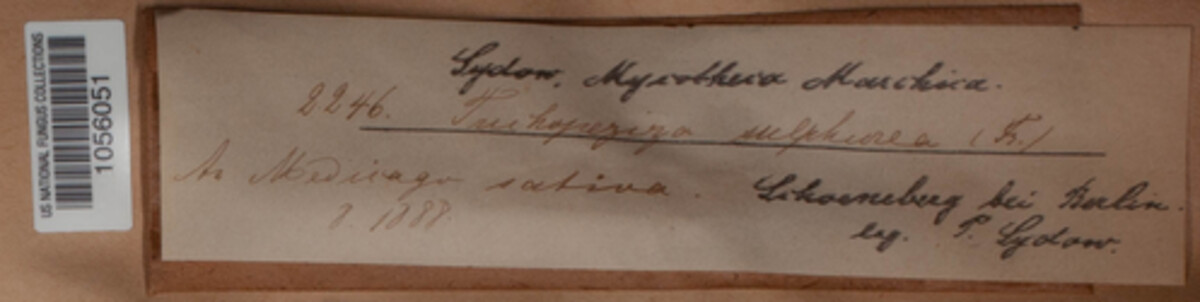 US NATIONAL FUNGUS COLLECTIONS
1056051
Sydow, Mycotheca Marchica.
2246. Trichopeziza sulphurea (Fr.)
An Medicago sativa. Schoeneberg bei Berlin.
8. 1888. leg. P. Sydow.